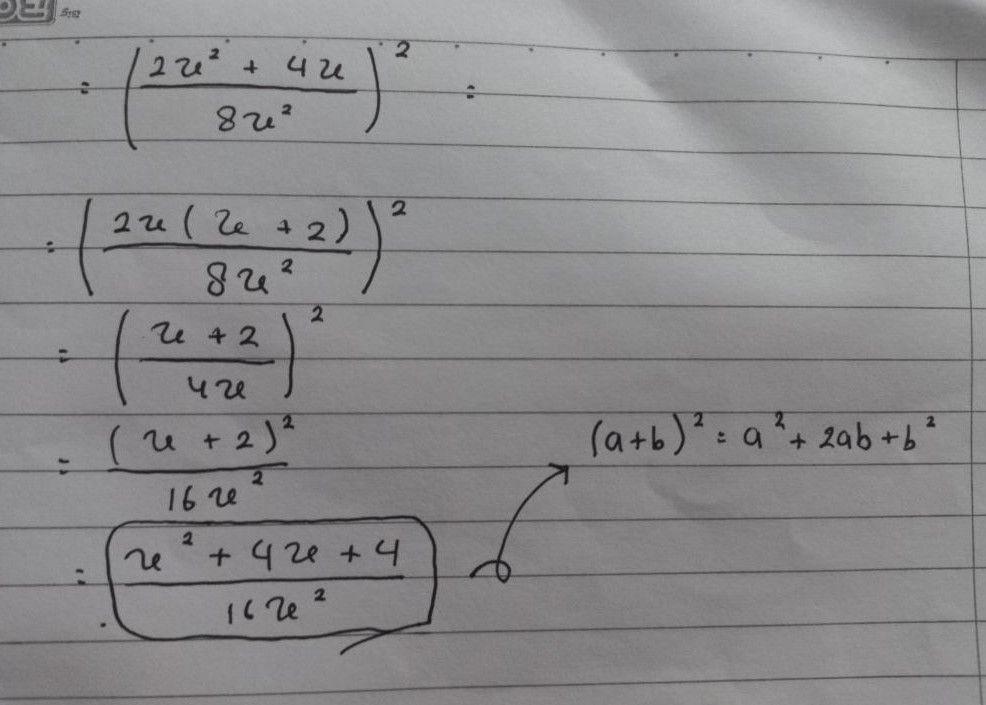 = ((2x² + 4x)/(8x²))² =
= ((2x(x + 2))/(8x²))²
= ((x + 2)/(4x))²
= (x + 2)²/(16x²)
(a+b)² = a² + 2ab + b²
= (x² + 4x + 4)/(16x²)